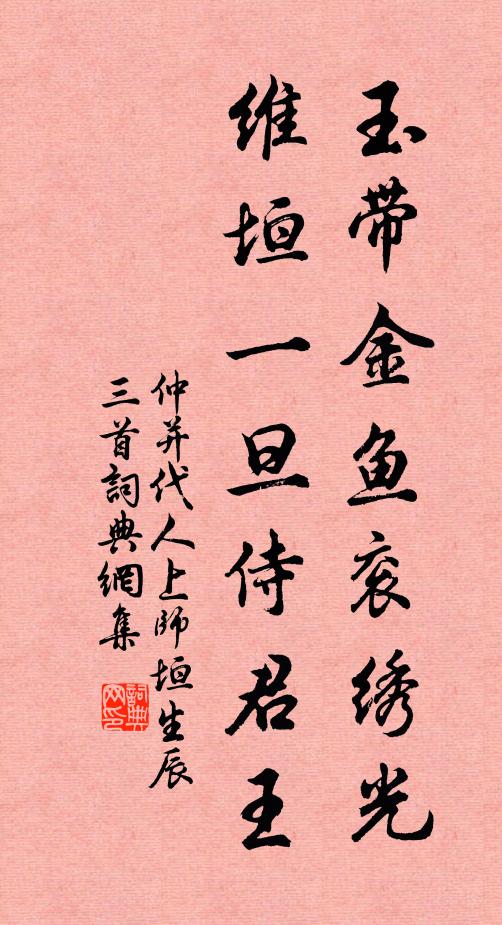 玉带金鱼衮绣光
维垣一旦侍君王
仲并代人上師垣生辰
三首詞典網集
詞典网印